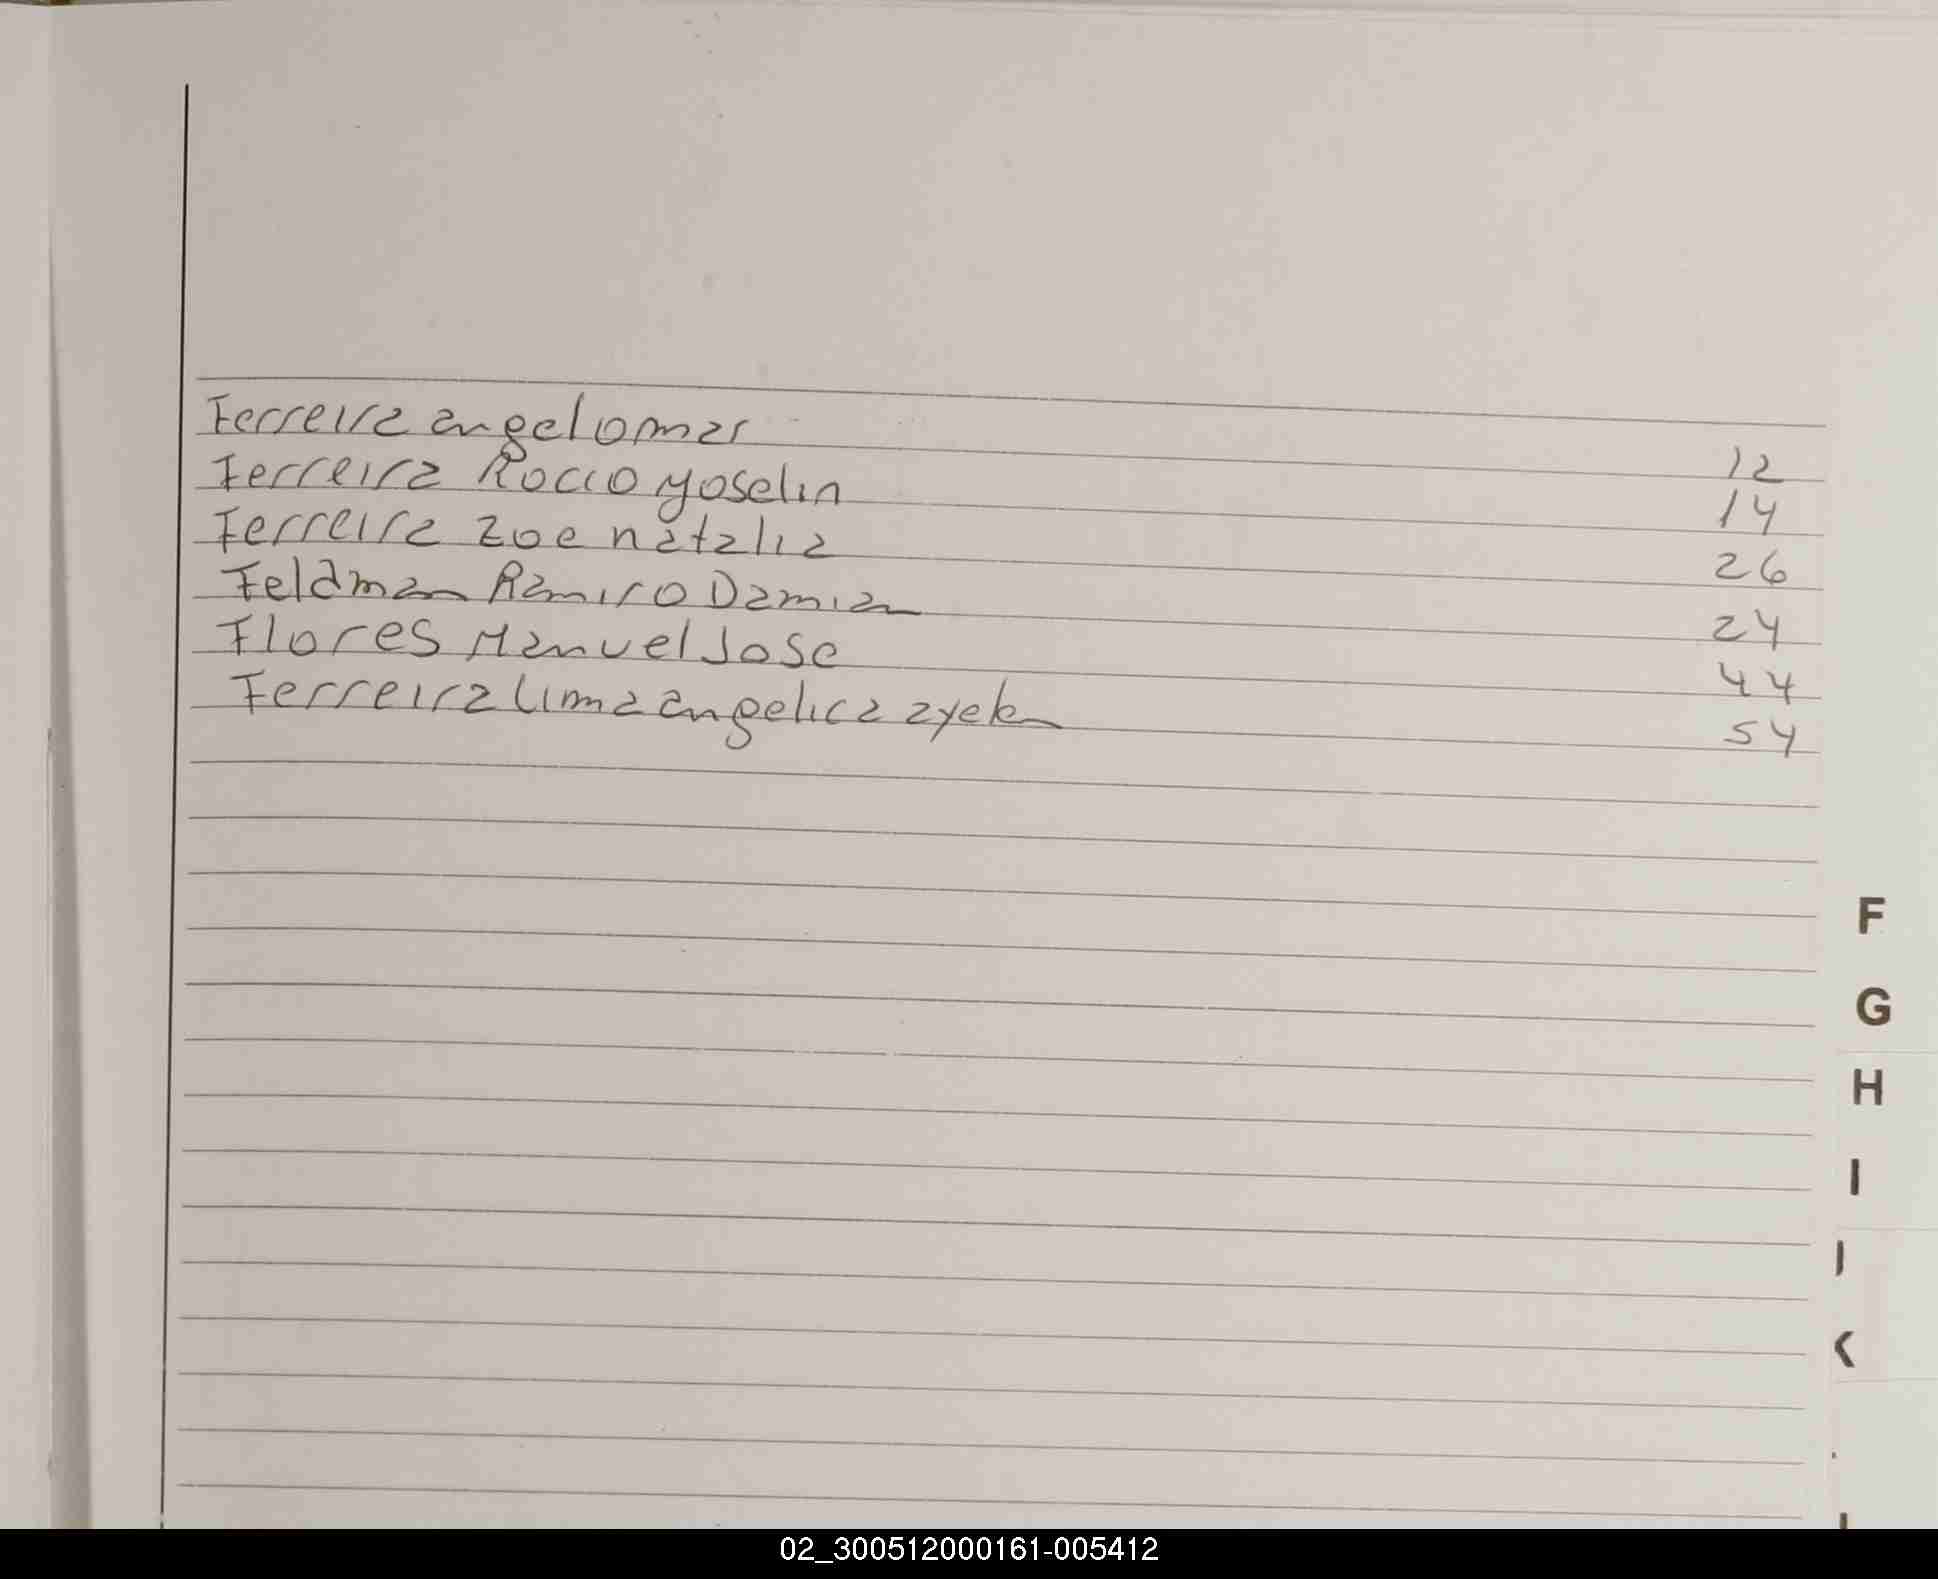 Ferreira angel omar 12
Ferreira Rocio yoselin 14
Ferreira zoe natalia 26
Feldman Ramiro Damian 24
Flores Manuel Jose 44
Ferreira lima angelica ayelen 54
F
G
H
I
02_300512000161-005412